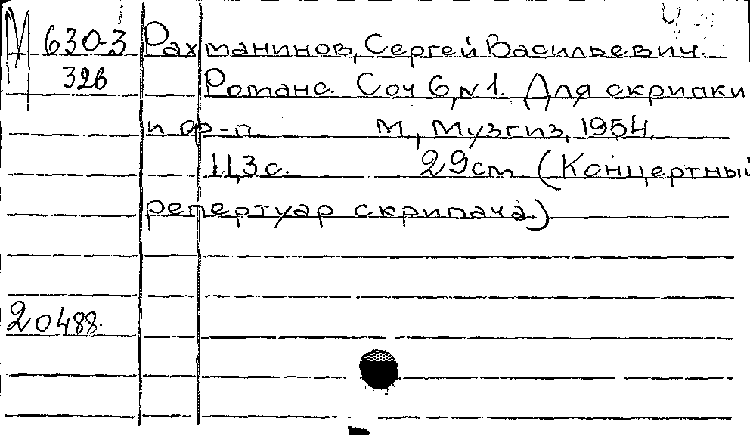 М 630-3 Рахманинов, Сергей Васильевич.
326 Романс. Соч 6, N1. Для скрипки
и ф-п. М., Музгиз, 1954.
11,3 с. 29см (Концертный
репертуар скрипача.)
20488.